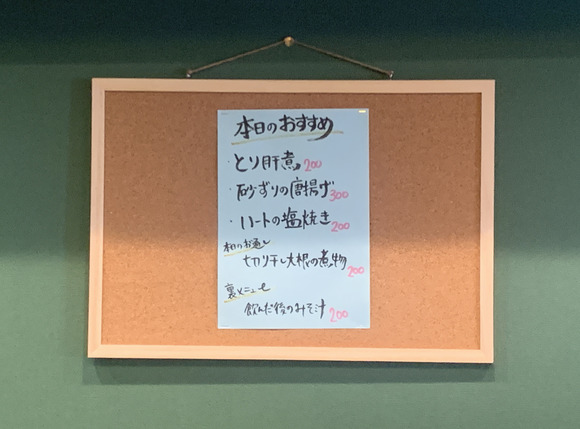 本日のおすすめ
・とり肝煮 200
・砂ずりの唐揚げ 300
・ハートの塩焼き 200
本日のお通し
切り干し大根の煮物 200
裏メニュー
飲んだ後のみそ汁 200